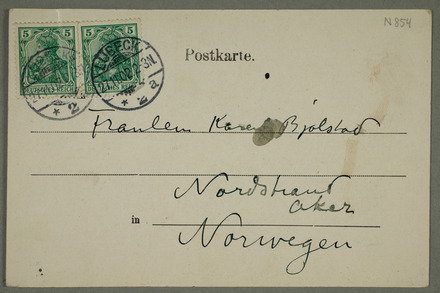 N 854
5 5 5 5
DEUTSCHES REICH
LÜBECK
2
2 a
Postkarte.
Fraulein Karen Bjölstad
Nordstrand
Aker
in
Norwegen